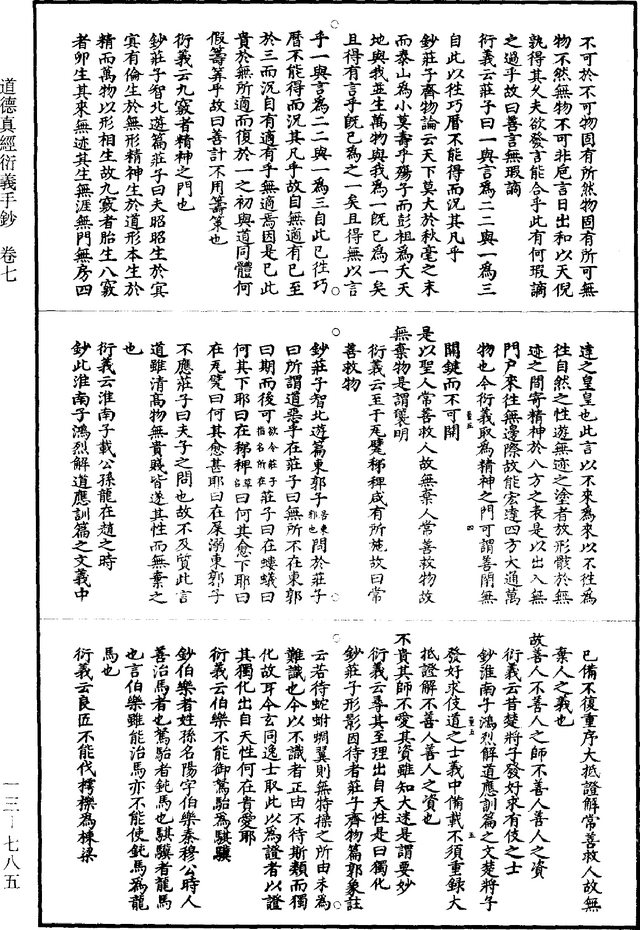 道德真經衍義手鈔　卷七
不可於不可物固有所然物固有所可無
物不然無物不可非卮言日出和以天倪
孰得其久夫欲發言能合乎此有何瑕讁
之過乎故曰善言無瑕讁
衍義云莊子曰一與言為二二與一為三
自此以往巧曆不能得而況其凡乎
鈔莊子齊物論云天下莫大於秋毫之末
而泰山為小莫壽乎殤子而彭祖為夭天
地與我並生萬物與我為一既已為一矣
且得有言乎既已為之一矣且得無以言
乎一與言為二二與一為三自此已往巧
曆不能得而況其凡乎故自無適有已至
於三而況自有適有乎無適焉因是已此
貴於無所適而復於一之初與道同體何
假籌筭乎故曰善計不用籌策也
衍義云九竅者精神之門也
鈔莊子智北遊篇莊子曰夫昭昭生於冥
冥有倫生於無形精神生於道形本生於
精而萬物以形相生故九竅者胎生八竅
者卵生其來無迹其生無涯無門無房四
達之皇皇也此言以不來為來以不往為
往自然之性遊無迹之塗者放形骸於無
迹之間寄精神於八方之表是以出入無
門戶來往無邊際故能宏達四方大通萬
物也今衍義取為精神之門可謂善閉無
關鍵而不可開
是以聖人常善救人故無棄人常善救物故
無棄物是謂襲明
衍義云至于瓦甓稊稗咸有所施故曰常
善救物
鈔莊子智北遊篇東郭子居東郭也問於莊子
曰所謂道惡乎在莊子曰無所不在東郭
曰期而後可欲令莊子指名所在莊子曰在螻蟻曰
何其下耶曰在稊稗草名曰何其愈下耶曰
在瓦甓曰何其愈甚耶曰在屎溺東郭子
不應莊子曰夫子之問也故不及質此言
道雖清高物無貴賤皆遂其性而無棄之
也
衍義云淮南子載公孫龍在趙之時
鈔此淮南子鴻烈解道應訓篇之文義中
已備不復重序大抵證解常善救人故無
棄人之義也
故善人不善人之師不善人善人之資
衍義云昔楚將子發好求有伎之士
鈔淮南子鴻烈解道應訓篇之文楚將子
發好求伎道之士義中備載不須重錄大
抵證解不善人善人之資也
不貴其師不愛其資雖知大迷是謂要妙
衍義云尋其至理出自天性是曰獨化
鈔莊子形影因待者莊子齊物篇郭象註
云若待蛇蚹蜩翼則無特操之所由未為
難識也今以不識者正由不待斯類而獨
化故耳今玄同逸士取此以為證者以證
其獨化出自天性何在貴愛耶
衍義云伯樂不能御駑駘為騏驥
鈔伯樂者姓孫名陽字伯樂秦穆公時人
善治馬者也駑駘者鈍馬也騏驥者龍馬
也言伯樂雖能治馬亦不能使鈍馬為龍
馬也
衍義云良匠不能伐樗櫟為棟梁
一三—七八五